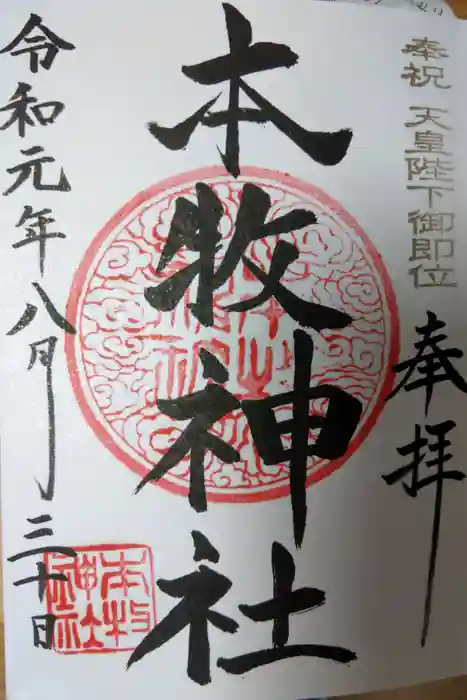 奉祝 天皇陛下御即位
奉拝
本牧神社
令和元年八月三十日
本牧
神社